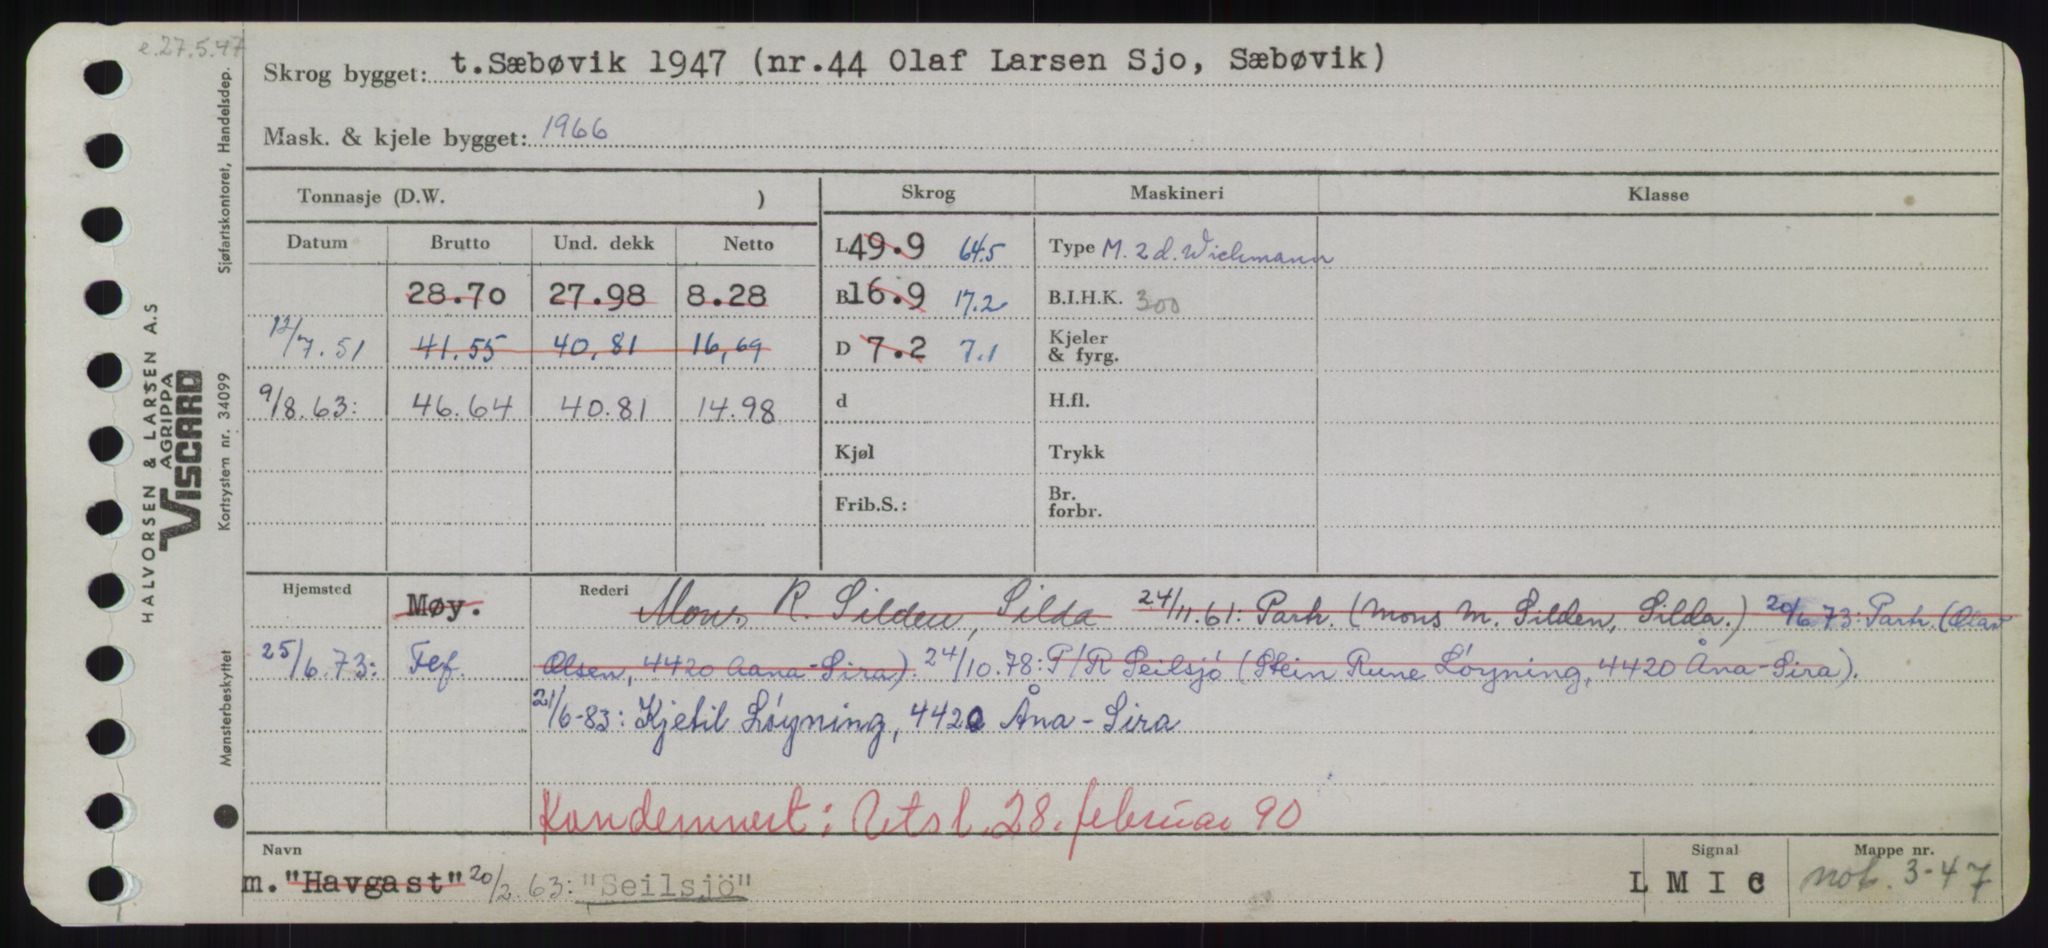 e.27.5.47
Skrog bygget: t.Sæbøvik 1947 (nr.44 Olaf Larsen Sjo, Sæbøvik)
Mask. & kjele bygget: 1966
Tonnasje (D.W. )
Skrog
Maskineri
Klasse
Datum Brutto Und. dekk Netto
L 49.9 64.5
Type M. 2 d. Wichmann
28.70 27.98 8.28
B 16.9 17.2
B.I.H.K. 300
12/7.51 41.55 40,81 16,69
D 7.2 7.1
Kjeler
& fyrg.
9/8.63: 46.64 40.81 14.98
d
H.fl.
Kjøl
Trykk
Frib.S.:
Br.
forbr.
Hjemsted Møy.
Rederi Mons R. Silden, Silda 24/11.61: Parh. (Mons M. Silden, Silda.) 20/6 73: Parh. (Olav
25/6.73: Fef. Olsen, 4420 Aana-Sira). 24/10.78: P/R Seilsjö (Stein Rune Løyning, 4420 Åna-Sira).
21/6-83: Kjetil Løyning, 4420 Åna-Sira
Kondemnert: Utsl. 28. februar 90
Navn
Signal
Mappe nr.
m. "Havgast" 20/2.63: "Seilsjö"
L M I C
not. 3-47
HALVORSEN & LARSEN A.S
AGRIPPA
VISCARD
Mønsterbeskyttet
Kortsystem nr. 34099
Sjøfartskontoret, Handelsdep.